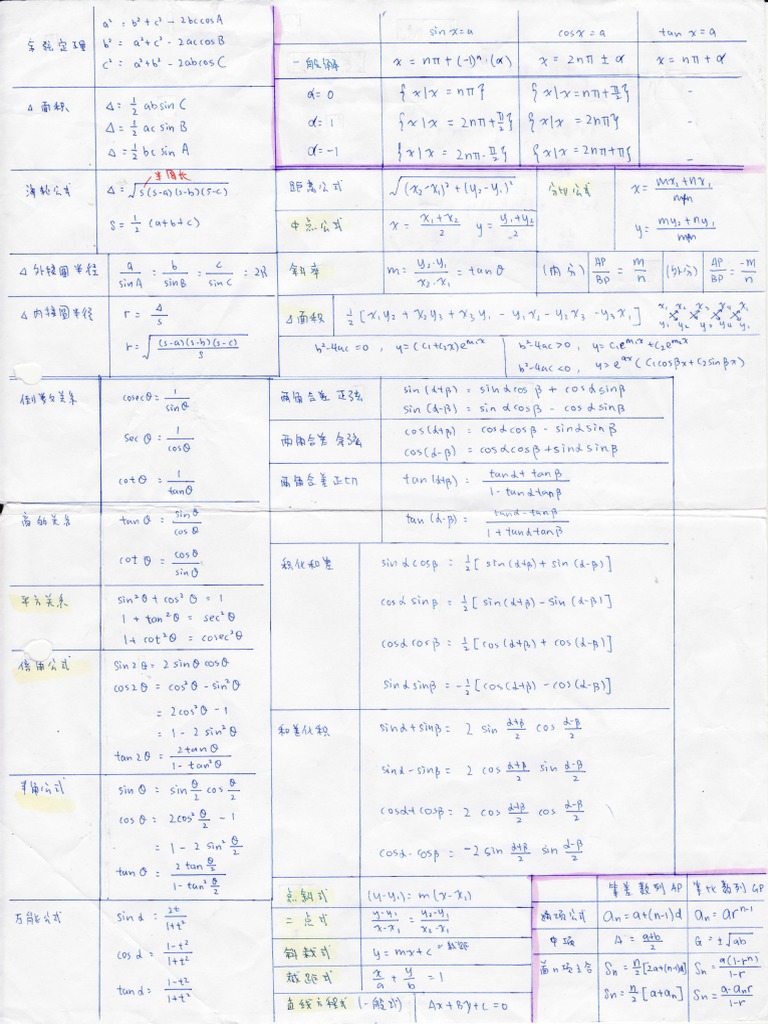 余弦定理
a² = b² + c² - 2bccosA
b² = a² + c² - 2accosB
c² = a² + b² - 2abcosC
△面积
Δ = ½ absinC
Δ = ½ acsinB
Δ = ½ bcsinA
海伦公式
半周长
Δ = √(s(s-a)(s-b)(s-c))
S = ½ (a+b+c)
△外接圆半径
a/sinA = b/sinB = c/sinC = 2R
△内接圆半径
r = Δ/s
r = √((s-a)(s-b)(s-c)/s)
sin x = a cos x = a tan x = a
一般解 x = nπ + (-1)ⁿ·(α) x = 2nπ ± α x = nπ + α
α = 0 {x|x = nπ} {x|x = nπ + π/2} -
α = 1 {x|x = 2nπ + π/2} {x|x = 2nπ} -
α = -1 {x|x = 2nπ - π/2} {x|x = 2nπ + π} -
距离公式 √((x₂-x₁)² + (y₂-y₁)²)
中点公式 x = (x₁+x₂)/2 y = (y₁+y₂)/2
分切公式
x = (mx₂+nx₁)/(m+n)
y = (my₂+ny₁)/(m+n)
斜率 m = (y₂-y₁)/(x₂-x₁) = tanθ (内分) AP/BP = m/n (外分) AP/BP = -m/n
△面积 ½[x₁y₂ + x₂y₃ + x₃y₁ - y₁x₂ - y₂x₃ - y₃x₁]
x₁ x₂ x₃ x₄ x₁
y₁ y₂ y₃ y₄ y₁
b²-4ac = 0, y = (C₁+C₂x)e^(m₁x)
b²-4ac > 0, y = C₁e^(m₁x) + C₂e^(m₂x)
b²-4ac < 0, y = e^(αx)(C₁cosβx + C₂sinβx)
倒数关系
cosecθ = 1/sinθ
secθ = 1/cosθ
cotθ = 1/tanθ
商的关系
tanθ = sinθ/cosθ
cotθ = cosθ/sinθ
平方关系
sin²θ + cos²θ = 1
1 + tan²θ = sec²θ
1 + cot²θ = cosec²θ
倍角公式
sin2θ = 2sinθcosθ
cos2θ = cos²θ - sin²θ
= 2cos²θ - 1
= 1 - 2sin²θ
tan2θ = 2tanθ/(1-tan²θ)
半角公式
sinθ = sin θ/2 cos θ/2
cosθ = 2cos² θ/2 - 1
= 1 - 2sin² θ/2
tanθ = (2tan θ/2)/(1-tan² θ/2)
万能公式
sinα = 2t/(1+t²)
cosα = (1-t²)/(1+t²)
tanα = (1-t²)/(1+t²)
两角合差正弦
sin(α+β) = sinαcosβ + cosαsinβ
sin(α-β) = sinαcosβ - cosαsinβ
两角合差余弦
cos(α+β) = cosαcosβ - sinαsinβ
cos(α-β) = cosαcosβ + sinαsinβ
两角合差正切
tan(α+β) = (tanα+tanβ)/(1-tanαtanβ)
tan(α-β) = (tanα-tanβ)/(1+tanαtanβ)
积化和差
sinαcosβ = ½[sin(α+β) + sin(α-β)]
cosαsinβ = ½[sin(α+β) - sin(α-β)]
cosαcosβ = ½[cos(α+β) + cos(α-β)]
sinαsinβ = -½[cos(α+β) - cos(α-β)]
和差化积
sinα + sinβ = 2 sin (α+β)/2 cos (α-β)/2
sinα - sinβ = 2 cos (α+β)/2 sin (α-β)/2
cosα + cosβ = 2 cos (α+β)/2 cos (α-β)/2
cosα - cosβ = -2 sin (α+β)/2 sin (α-β)/2
点斜式 (y-y₁) = m(x-x₁)
二点式 (y-y₁)/(x-x₁) = (y₂-y₁)/(x₂-x₁)
斜截式 y = mx + c
截距式 x/a + y/b = 1
直线方程式(一般式) Ax + By + C = 0
等差数列AP 等比数列GP
通项公式 aₙ = a+(n-1)d aₙ = arⁿ⁻¹
中项 A = (a+b)/2 G = ±√ab
前n项之合 Sₙ = n/2[2a+(n-1)d] Sₙ = a(1-rⁿ)/(1-r)
Sₙ = n/2[a+aₙ] Sₙ = (a-aₙr)/(1-r)